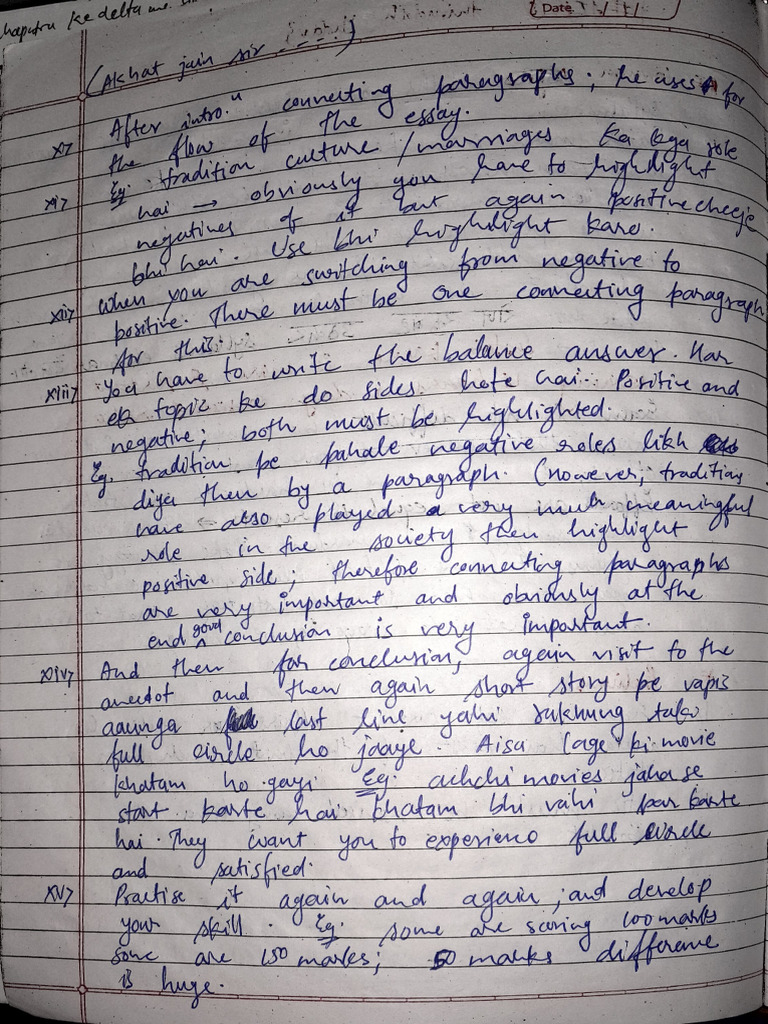 ke delta me
Date
(Akhat jain sir)
x> After intro.n connecting paragraphs; he uses for
the flow of the essay.
xi> Eg: tradition culture / marriages ka kya role
hai → obviously you have to highlight
negatives of it but again positive cheeje
bhi hai. Use bhi highlight karo.
xii> When you are switching from negative to
positive. There must be one connecting paragraph
for this.
xiii> You have to write the balance answer. Har
ek topic ke do sides hote hai. Positive and
negative; both must be highlighted.
Eg. tradition pe pahale negative roles likh
diya then by a paragraph. (However, traditions
have also played a very much meaningful
role in the society then highlight
positive side; therefore connecting paragraphs
are very important and obviously at the
end good conclusion is very important.
xiv> And then for conclusion, again visit to the
anecdot and then again short story pe vapis
aaunga last line yahi rakhunga tako
full circle ho jaaye. Aisa lage ki movie
khatam ho gayi. Eg. achchi movies jaha se
start karte hai khatam bhi vahi par karte
hai. They want you to experience full circle
and satisfied.
xv> Practise it again and again; and develop
your skill. Eg. some are scoring 100 marks
some are 150 marks; 50 marks difference
is huge.